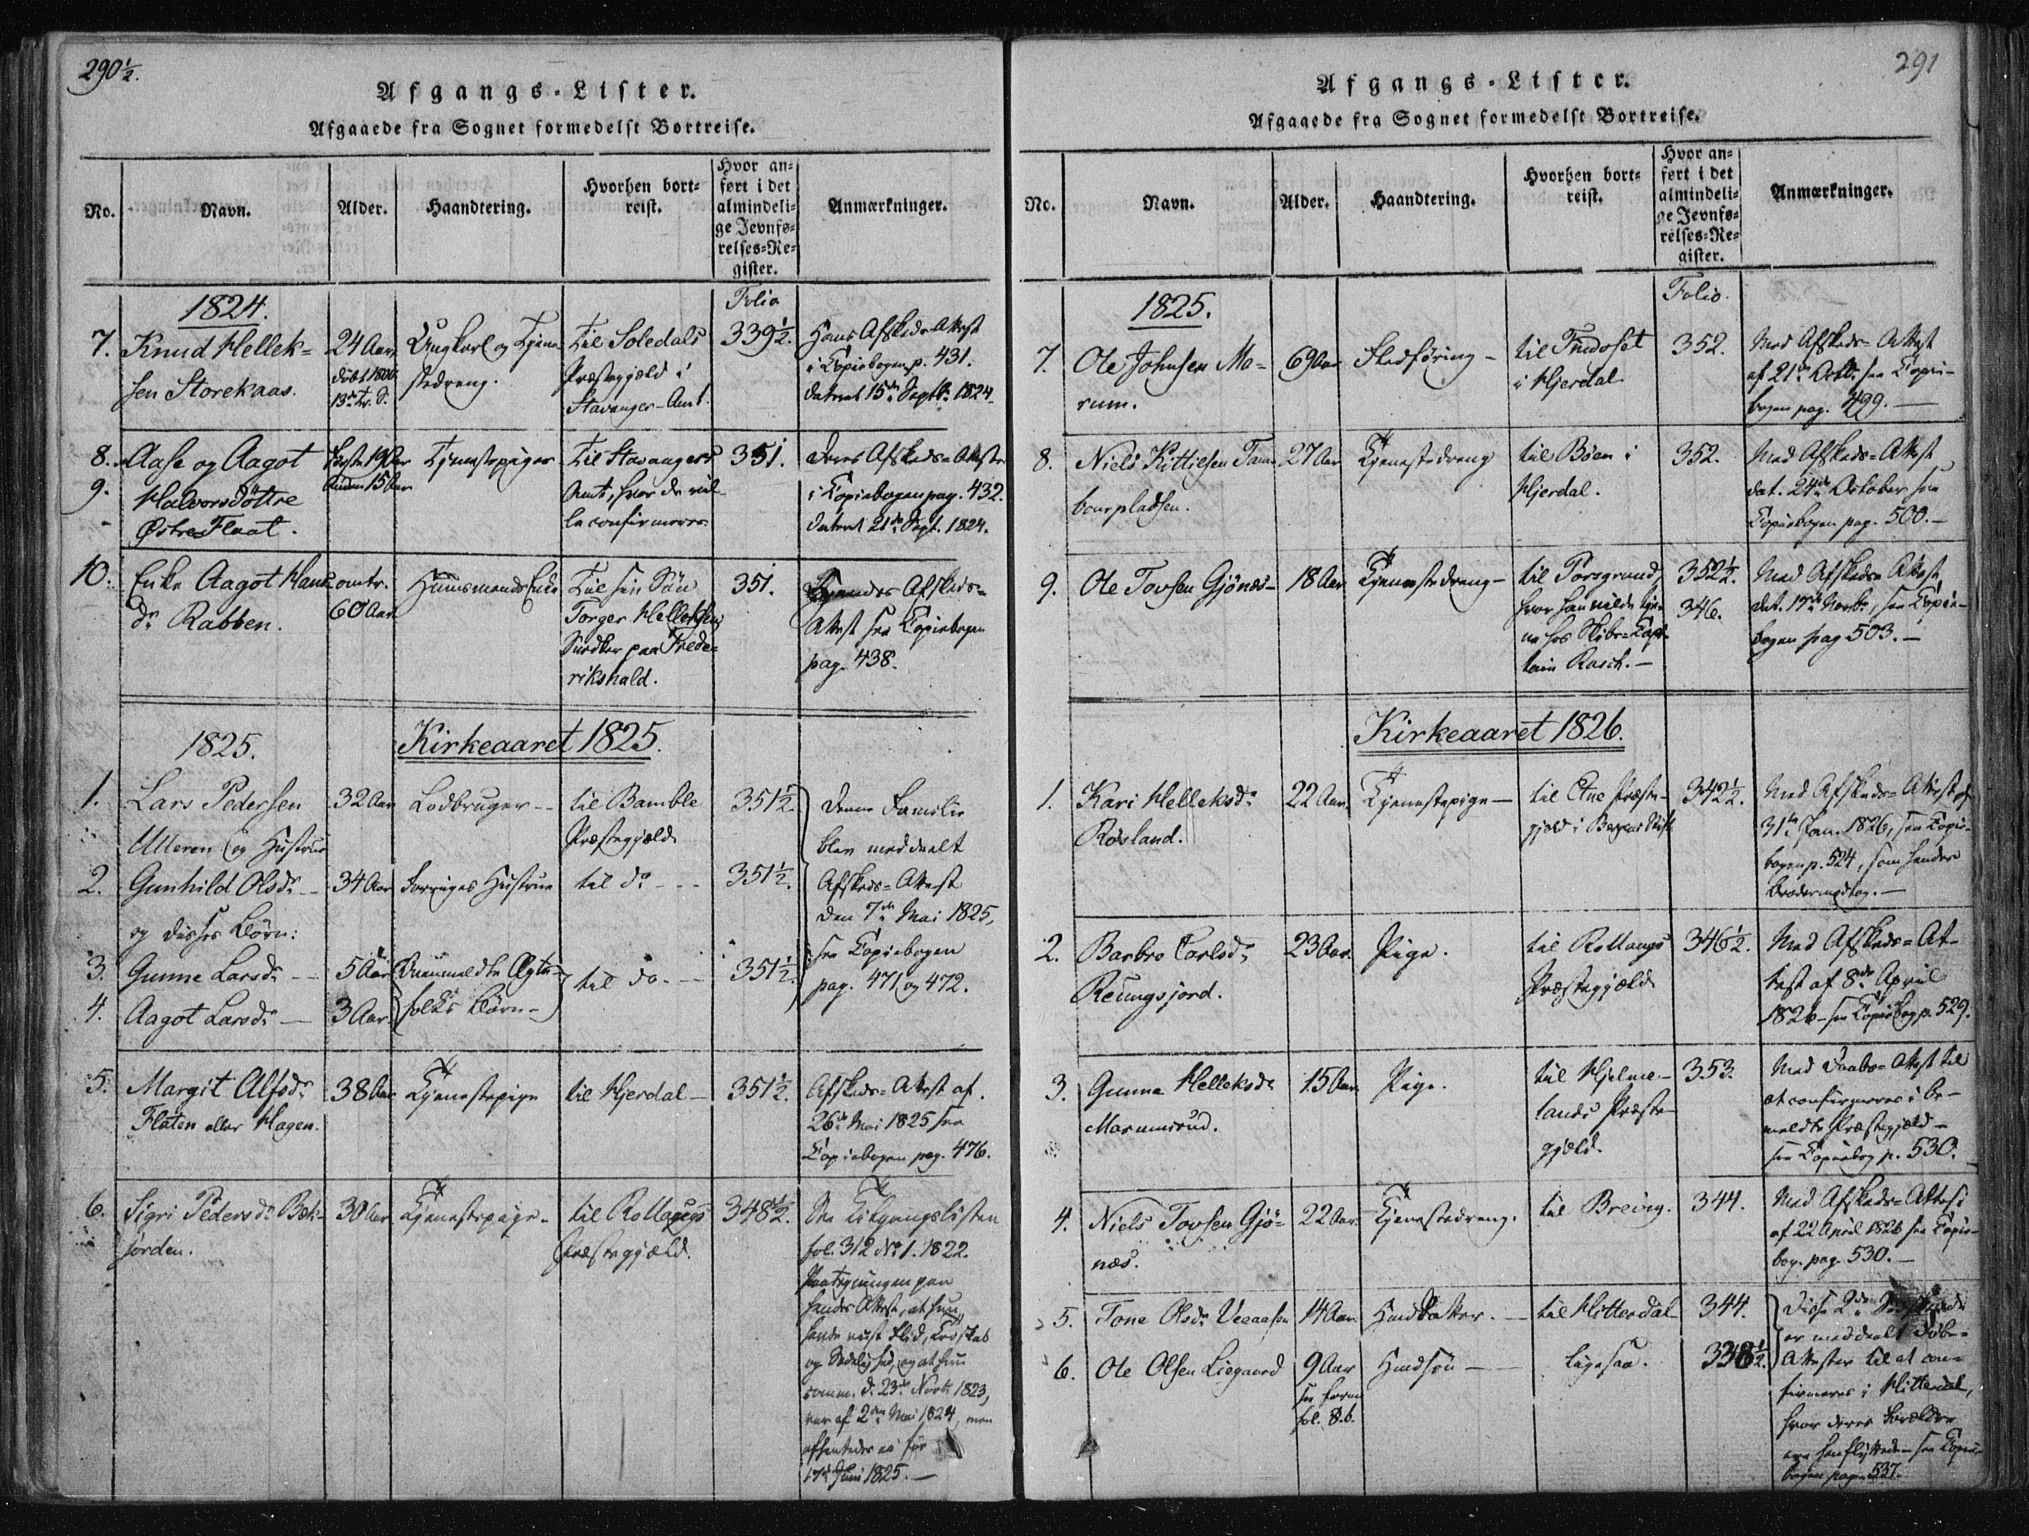 290½.
Afgangs-Lister.
Afgaaede fra Sognet formedelst Bortreise.
No.
Navn.
Alder.
Haandtering.
Hvorhen bort=
reist.
Hvor an=
ført i det
almindeli=
ge Jevnfø=
relses=Re=
gister.
Anmærkninger.
1824.
Folio
7. Knud Hellek=
sen Storekaas.
24 Aar
døbt 1800
13de Tr. S.
Ungkarl og Tjene
stedreng.
Til Soledals
Præstegjæld i
Stavanger-Amt.
339½.
Hans Afskeds-Attest
i Copiebogen p. 431.
dateret 15de Septbr. 1824.
8. Aase og Aagot
9. Halvorsdöttre
Østre Flaat.
første 19 Aar
Anden 15 Aar
Tjenestepiger
Til Stavangers
Amt, hvor de vil-
le confirmeres.
351.
Deres Afskeds-Attester
i Copiebogen pag. 432.
dateret 21de Sept. 1824.
10. Enke Aagot Hans
dr Rabben.
omtr.
60 Aar
Huusmands Enke
Til sin Søn
Torger Helleksen
Snedker paa Frede-
rikshald.
351.
Afskeds-
Attest see Copiebogen
pag. 438.
1825.
Kirkeaaret 1825.
1. Lars Pedersen
Ulleren og Hustrue
32 Aar
Lodbruger --
til Bamble
Præstegjæld
351½.
Denne Familie
blev meddeelt
Afskeds-Attest
den 7de Mai 1825,
see Copiebogen
pag. 471 og 472.
2. Gunhild Olsdr --
og disses Børn:
34 Aar
Forriges Hustrue
til do - - -
351½.
3. Gunne Larsdr --
5 Aar
Ovenmeldte Ægte-
til do. - -
351½.
4. Aagot Larsdr --
3 Aar.
folks Børn -
5. Margit Alfsdr
Flaten eller Hagen.
38 Aar
Tjenestepige
til Hjerdal -
351½.
Afskeds-Attest af
26de Mai 1825 see
Copiebogen pag. 476.
6. Sigri Pedersdr Bæk-
jorden.
30 Aar
Tjenestepige -
til Rollaugs
Præstegjæld.
348½.
See Tilgangslisten
fol. 312 No 1. 1822.
Paategningen paa
hendes Attest, at hun
havde viist Flid, Troskab
og Sædelighed, og at hun
comm. d. 23de Novbr. 1823,
var af 2den Mai 1824, men
afhentedes ei før
17de Juni 1825. -
291
Afgangs-Lister.
Afgaaede fra Sognet formedelst Bortreise.
No.
Navn.
Alder.
Haandtering.
Hvorhen bort=
reist.
Hvor an=
ført i det
almindeli=
ge Jevnfø=
relses=Re=
gister.
Anmærkninger.
1825.
Folio.
7. Ole Johnsen Ma-
rum.
69 Aar
Stedføring -
til Findoset
i Hjerdal
352.
Med Afskeds-Attest
af 21de Octbr. see Copie-
bogen pag. 499. -
8. Niels Kittilsen Tam-
bourpladsen.
27 Aar
Tjenestedreng
til Bøen i
Hjerdal.
352.
Med Afskeds-Attest
dat. 24de October see
Copiebogen pag. 500. -
9. Ole Tovsen Gjönæs-
18 Aar.
Tjenestedreng -
til Porsgrund,
hvor han vilde tje-
ne hos Skibs-Capi-
tain Rasch. -
352½.
346.
Med Afskeds Attest
dat. 17de Novbr., see Copie-
bogen pag 503. -
Kirkeaaret 1826.
1. Kari Helleksdr
Rosland.
22 Aar.
Tjenestepige -
til Etne Præste-
gjæld i Bergens Stift
342½.
Med Afskeds-Attest af
31te Jan. 1826, see Copie-
bogen p. 524, som hendes
Broder modtog. -
2. Barbro Carlsdr
Reungsjord.
23 Aar.
Pige.
til Rollaugs
Præstegjæld
346½.
Med Afskeds-At-
test af 8de April
1826 - see Copiebog p. 529.
3. Gunne Helleksdr
Marumsrud.
15 Aar.
Pige.
til Hjelme-
lands Præste-
gjæld.
353.
Med Daabs-Attest til
at confirmeres i be-
meldte Præstegjæld -
see Copiebog p. 530.
4. Niels Tovsen Gjö-
næs.
22 Aar.
Tjenestedreng.
til Brevig.
344.
Med Afskeds-Attest
af 22 April 1826 see Copie-
bog. pag. 530. -
5. Tone Olsdr
14 Aar.
Huusdatter. --
til Hitterdal
344.
Disse 2de
er meddeelt Døbe-
Attester til at con-
firmeres i Hitterdal,
hvor deres Forældre
ere henflyttede - see Copie-
bogen pag. 537.
6. Ole Olsen Liegaard
9 Aar
see foran
fol. 8.b.
Huussøn --
Ligesaa.
338½.